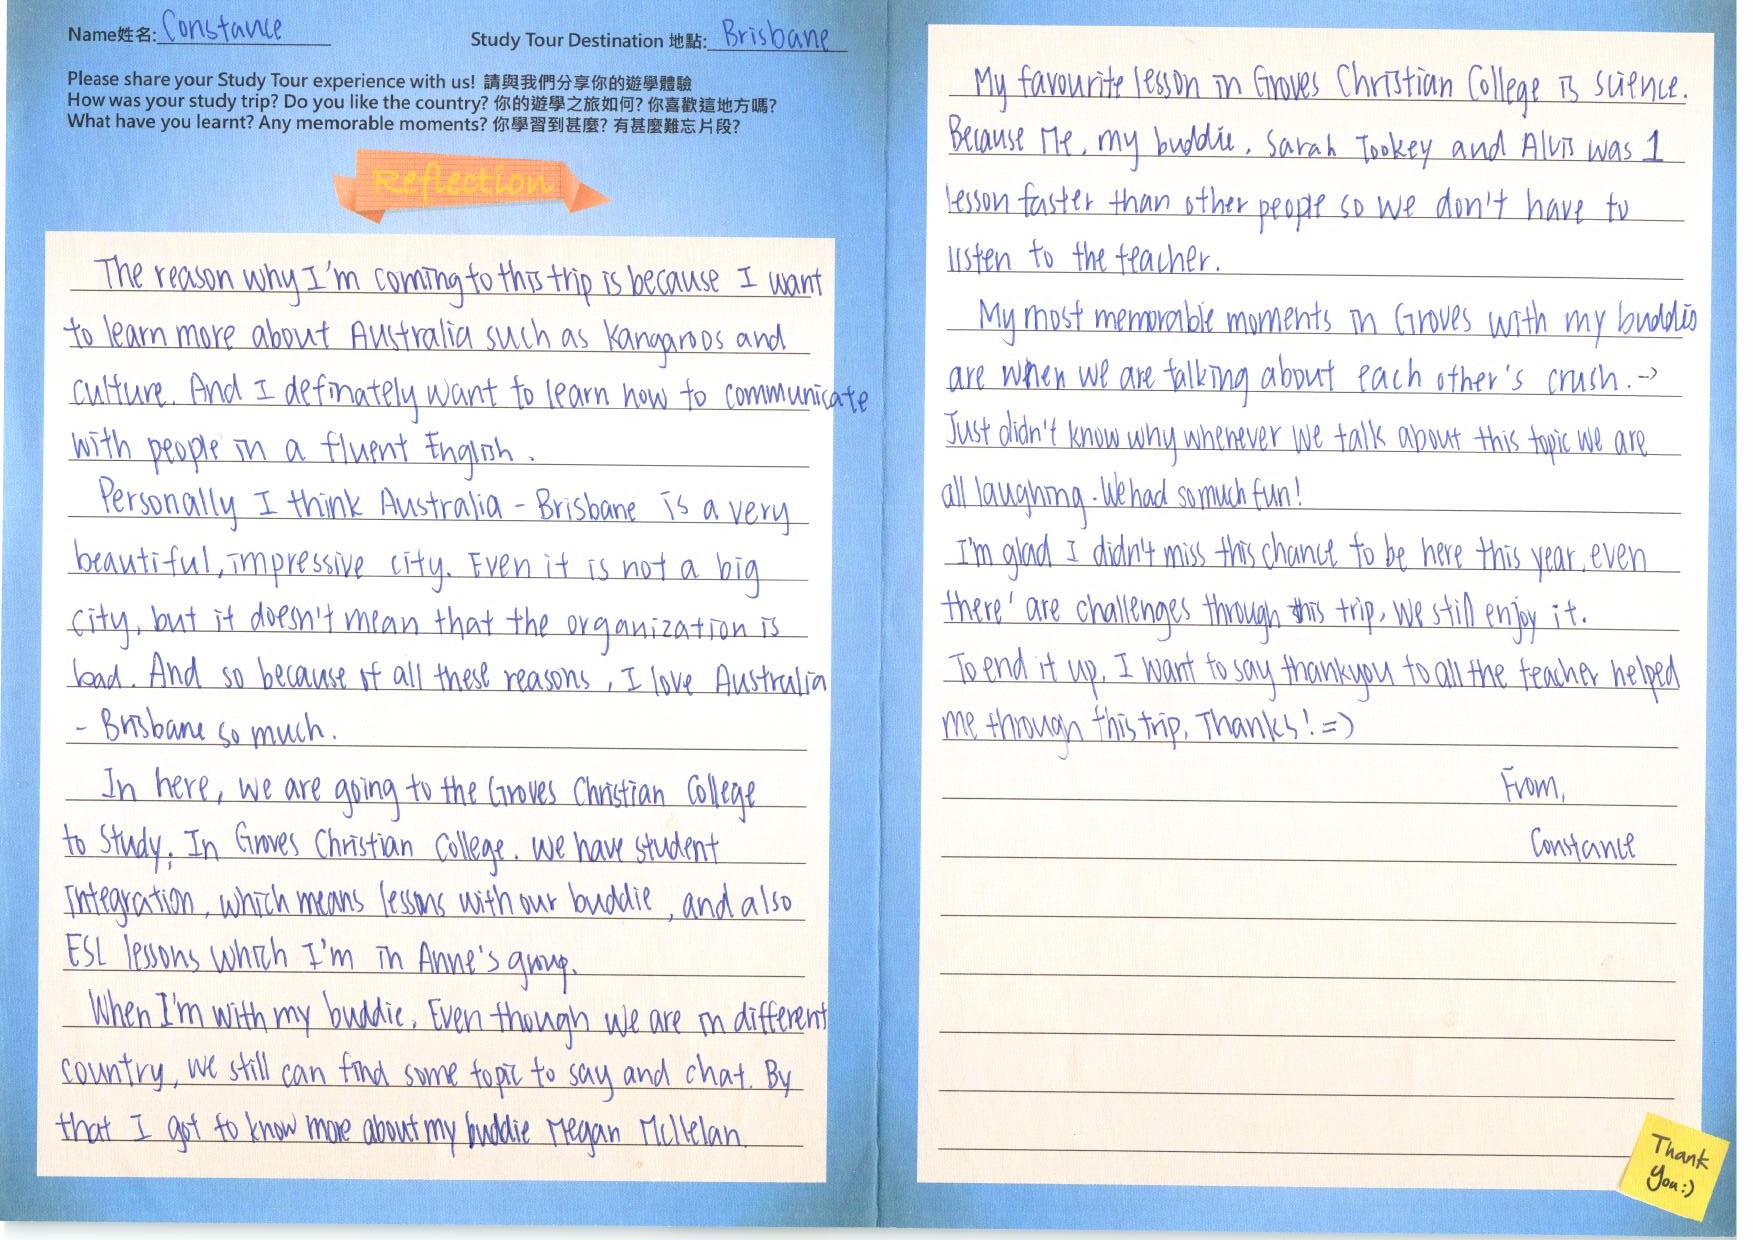 Name姓名: Constance
Study Tour Destination 地點: Brisbane
Please share your Study Tour experience with us! 請與我們分享你的遊學體驗
How was your study trip? Do you like the country? 你的遊學之旅如何? 你喜歡這地方嗎?
What have you learnt? Any memorable moments? 你學習到甚麼? 有甚麼難忘片段?
Reflection
The reason why I'm coming to this trip is because I want
to learn more about Australia such as Kangaroos and
culture. And I definately want to learn how to communicate
with people in a fluent English.
Personally I think Australia - Brisbane is a very
beautiful, impressive city. Even it is not a big
city, but it doesn't mean that the organization is
bad. And so because of all these reasons, I love Australia
- Brisbane so much.
In here, we are going to the Groves Christian College
to study. In Groves Christian College. we have student
Integration, which means lessons with our buddie, and also
ESL lessons which I'm in Anne's group.
When I'm with my buddie. Even though we are in different
country, we still can find some topic to say and chat. By
that I got to know more about my buddie Megan
My favourite lesson in Groves Christian College is science.
Because Me, my buddie, Sarah Tookey and Alvis was 1
lesson faster than other people so we don't have to
listen to the teacher.
My most memorable moments in Groves with my buddis
are when we are talking about each other's crush. ->
Just didn't know why whenever we talk about this topic we are
all laughing. We had so much fun!
I'm glad I didn't miss this chance to be here this year, even
there' are challenges through this trip, we still enjoy it.
To end it up, I want to say thankyou to all the teacher helped
me through this trip. Thanks! =)
From,
Constance
Thank
you:)